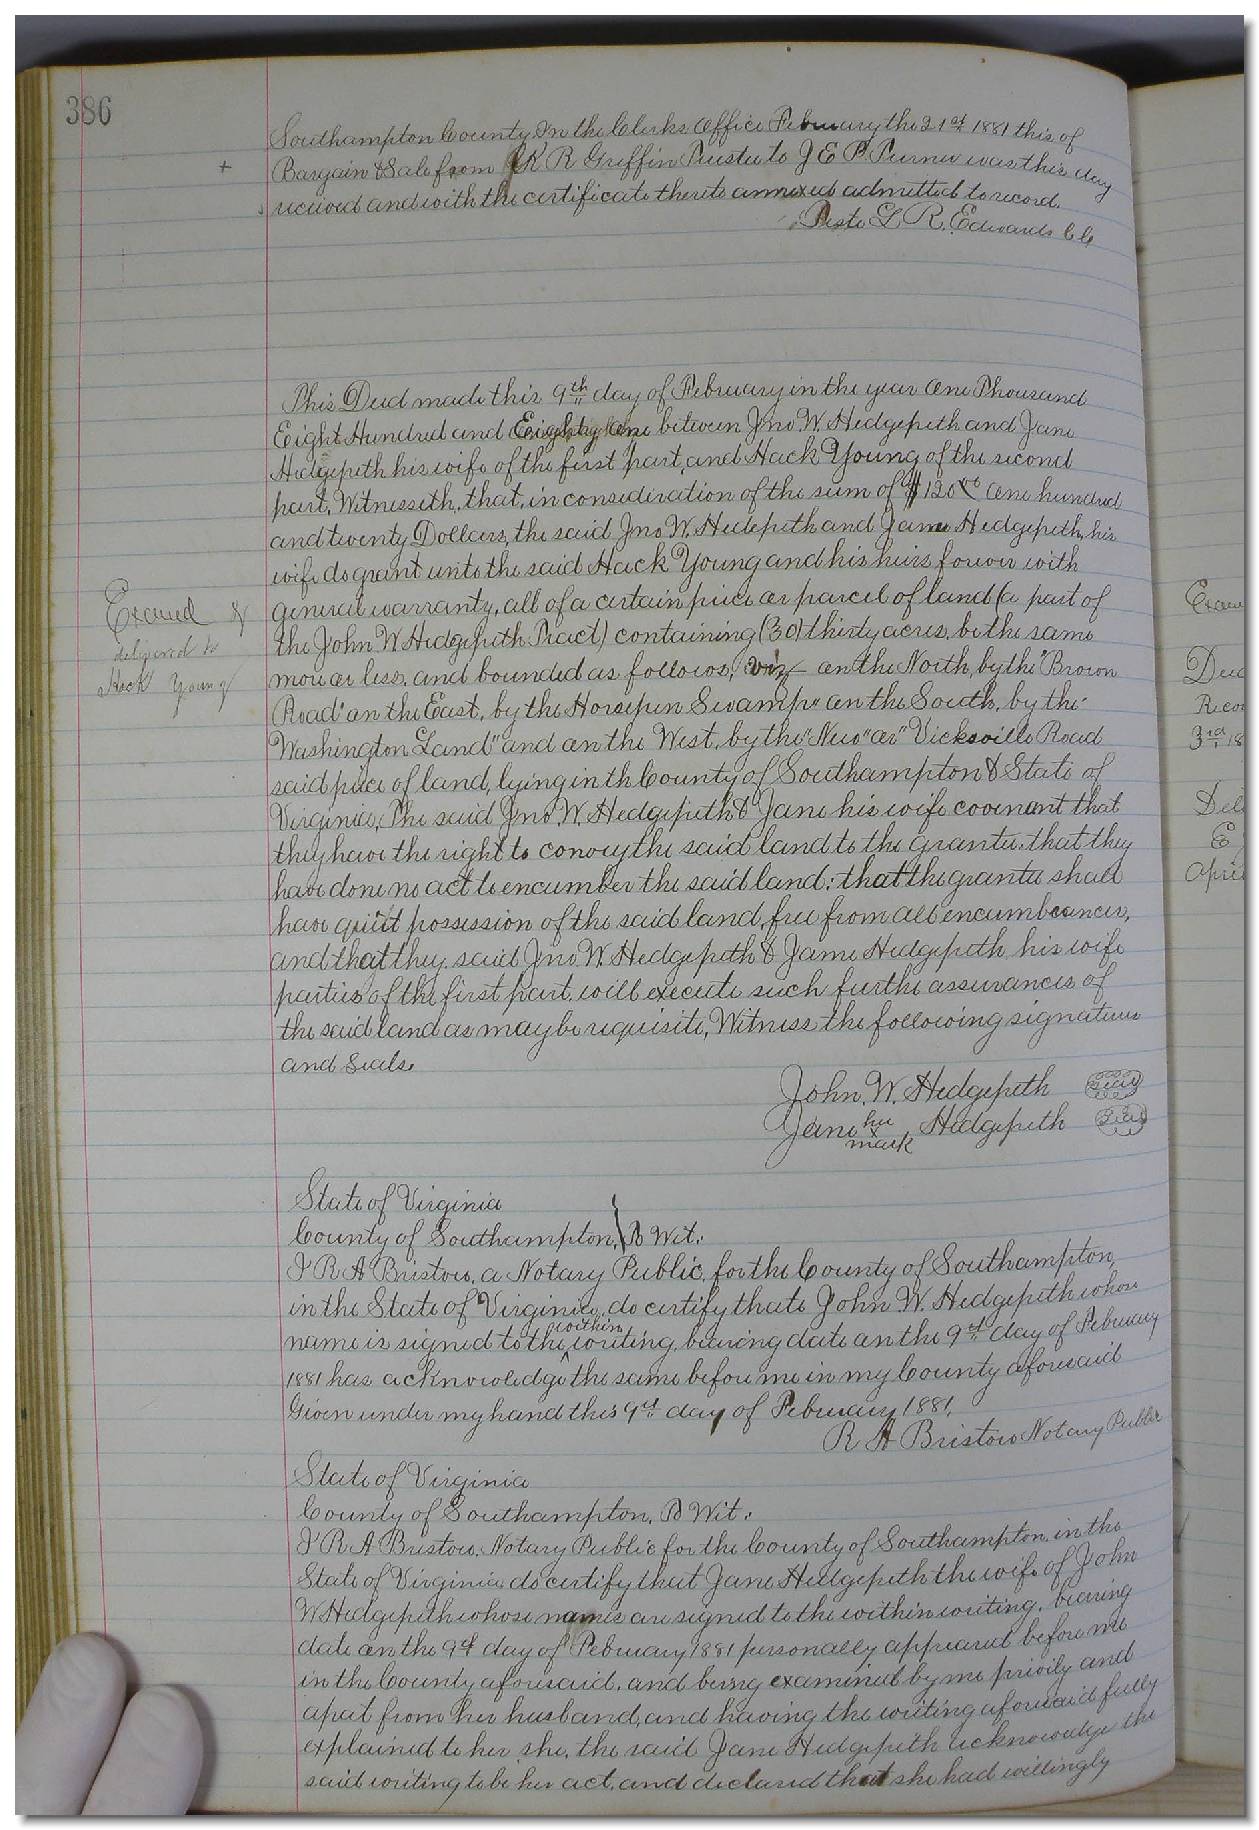 386
Southampton County In the Clerks Office February the 21st 1881 this of
+ Bargain & Sale from R R Griffin Trustee to J E P. Turner was this day
received and with the certificate thereto annexed admitted to record.
Teste L R. Edwards CC
This Deed made this 9th day of February in the year One Thousand
Eight Hundred and Eighty One between Jno. W. Hedgepeth and Jane
Hedgepeth his wife of the first part, and Hack Young of the second
part, Witnesseth, that, in consideration of the sum of $120.00 One hundred
and twenty Dollars, the said Jno W. Hedepeth and Jane Hedgepeth, his
wife do grant unto the said Hack Young and his heirs forever with
general warranty, all of a certain piece or parcel of land (a part of
the John W Hedgepeth Tract) containing (30) thirty acres, be the same
more or less, and bounded as follows, viz on the North, by the "Brown
Road" on the East, by the Horsepen Swamp" on the South, by the
Washington Land" and on the West, by the "New" or "Vicksville Road
said piece of land, lying in th County of Southampton & State of
Virginia, The said Jno. W. Hedgepeth & Jane his wife covenant that
they have the right to convey the said land to the grantee, that they
have done no act to encumber the said land; that the grantee shall
have quiet possession of the said land, free from all encumbrances,
and that they, said Jno W. Hedgepeth & Jane Hedgepeth his wife
parties of the first part, will execute such furthe assurances of
the said land as may be requisite, Witness the following signatures
and seals.
Exained &
delivered to
Hack Young
John. W. Hedgepeth Seal
Jane her x mark Hedgepeth Seal
State of Virginia
County of Southampton, To Wit:
I R A Bristow, a Notary Public, for the County of Southampton,
in the State of Virginia, do certify thate John W. Hedgepeth whose
within
name is signed to the ^ writing, bearing date on the 9th day of February
1881 has acknowledge the same before me in my County aforesaid
Given under my hand this 9th day of February 1881.
R A Bristow Notary Public
State of Virginia
County of Southampton, To Wit:
I R A Bristow, Notary Public for the County of Southampton, in the
State of Virginia, do certify that Jane Hedgepeth the wife of John
W Hedgepeth whose names are signed to the within writing, bearing
date on the 9th day of February 1881 personally appeared before me
in the County aforesaid, and being examined by me privily and
apat from her husband, and having the writing aforesaid fully
explained to her she, the said Jane Hedgepeth acknowledge the
said writing to be her act, and declared that she had willingly
Exam
Deed
Reco
3rd 18
Del
E
April